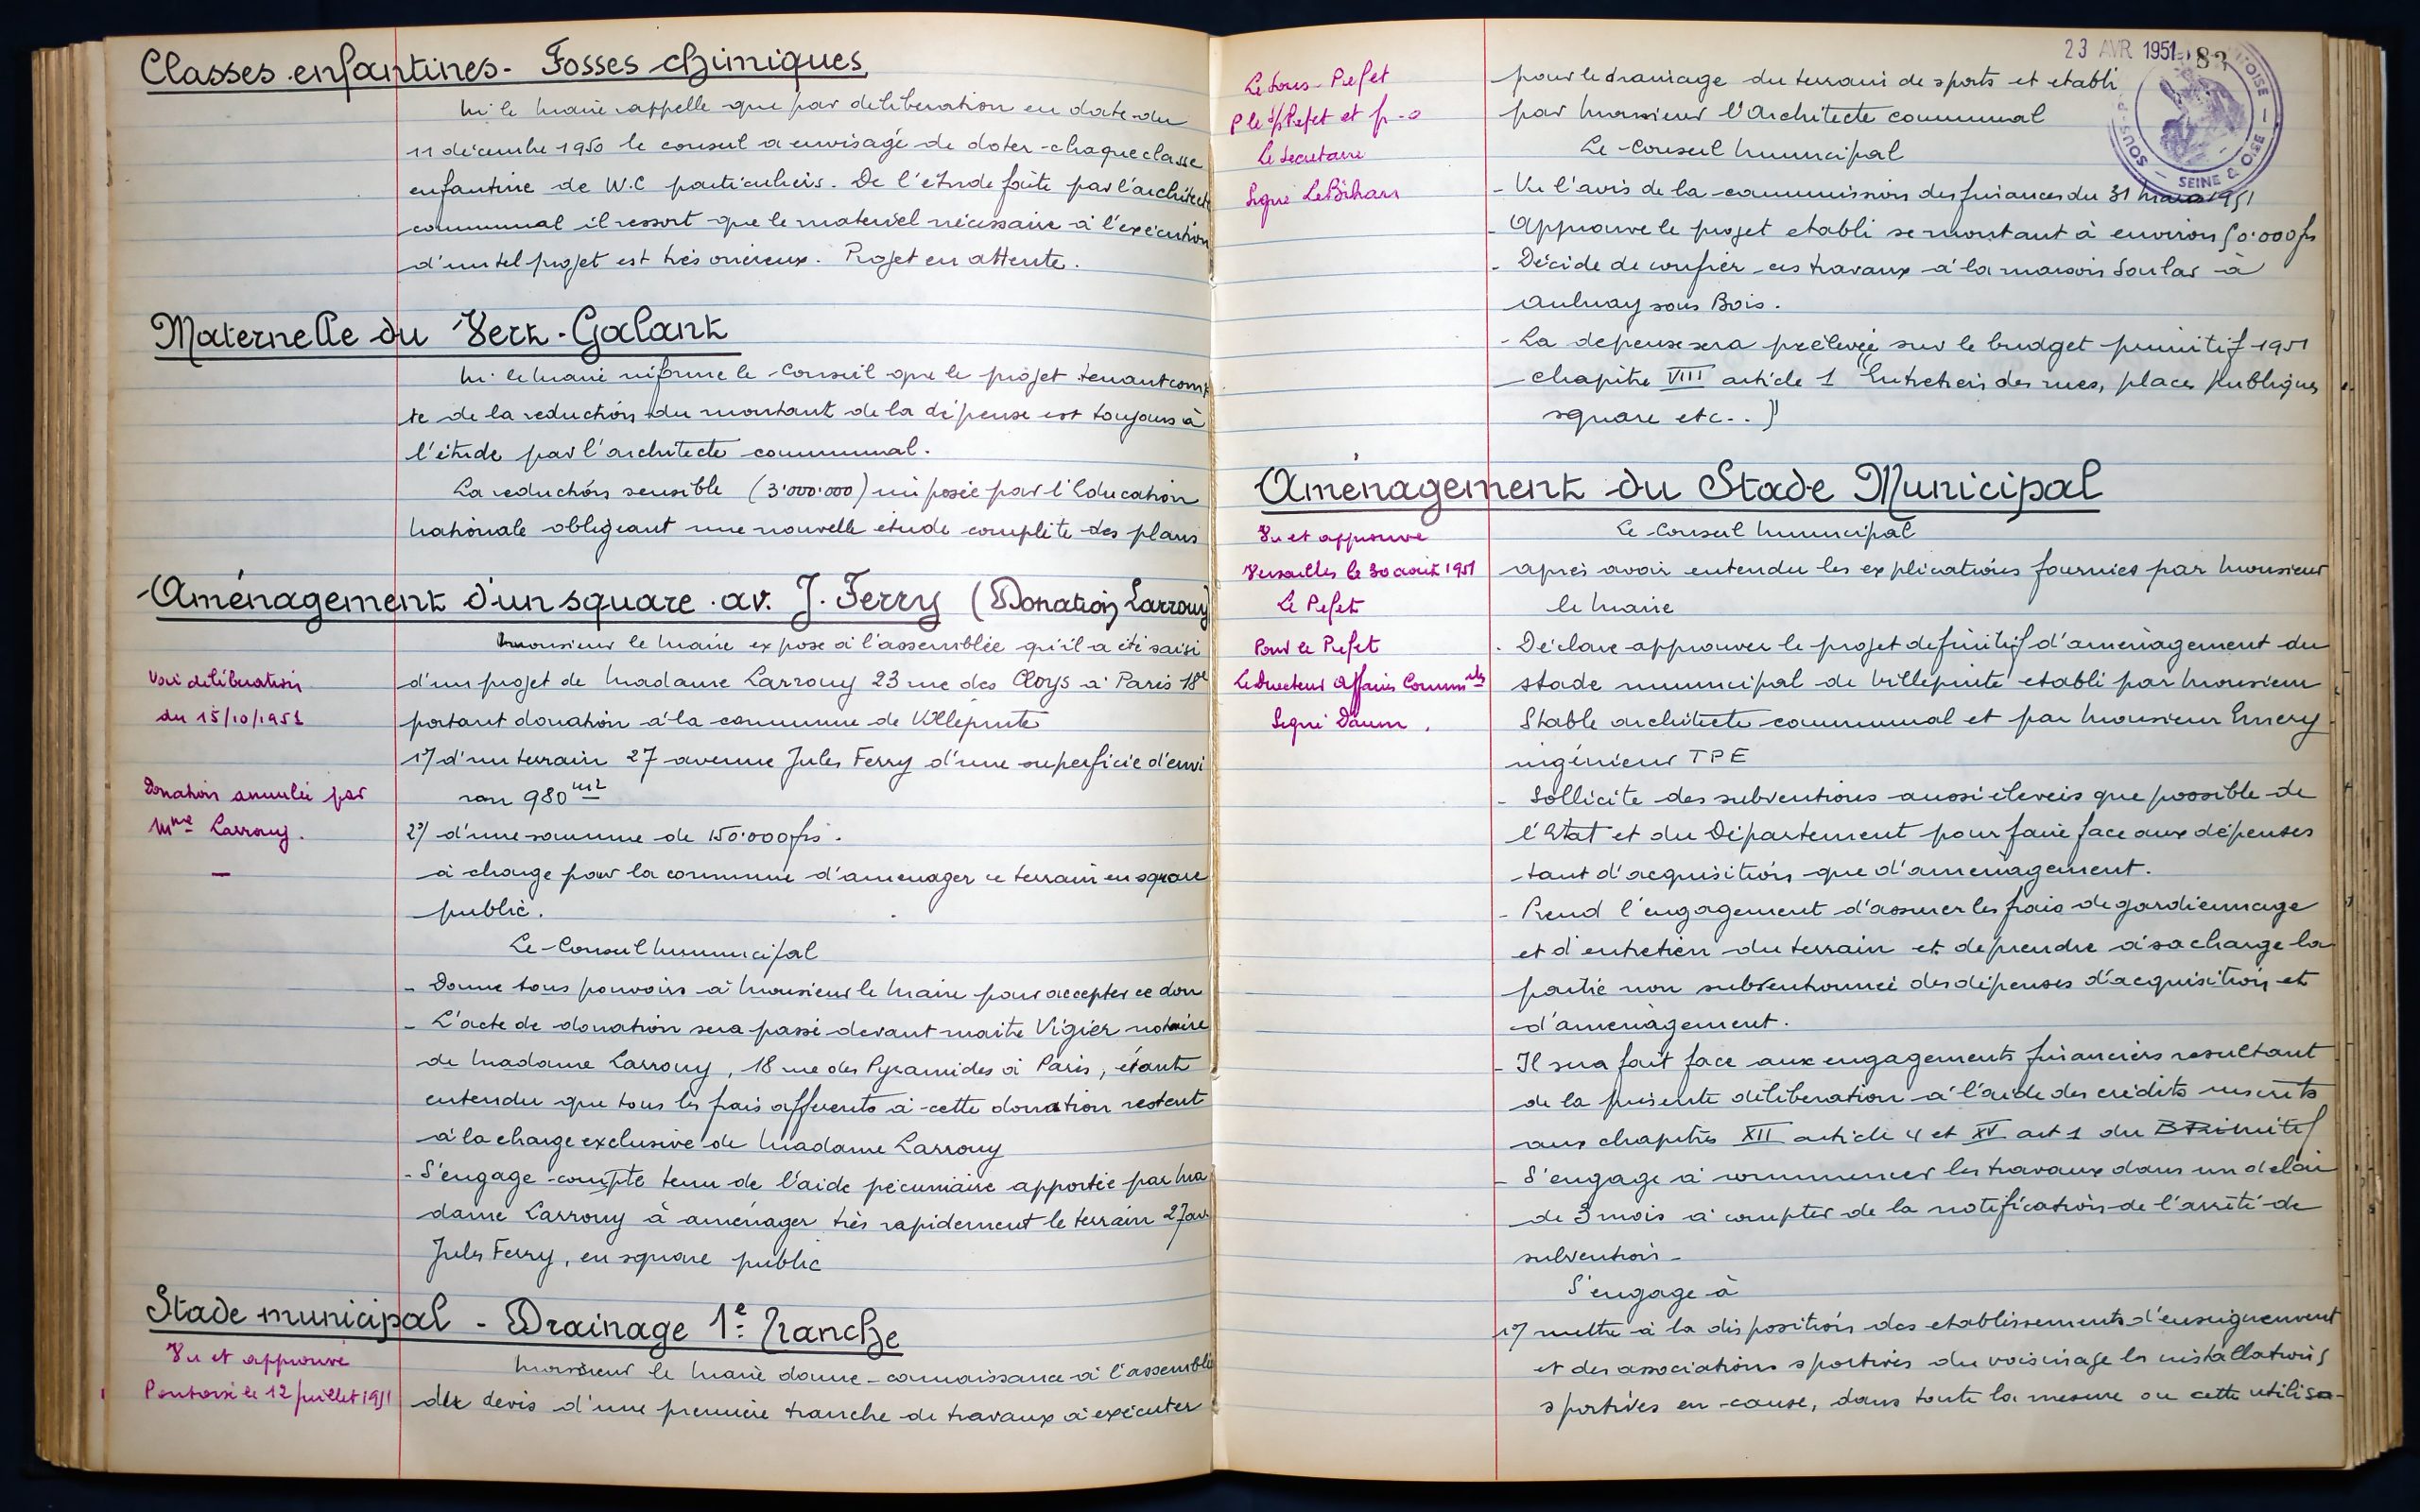 Classes enfantines - Fosses chimiques
M. le Maire rappelle que par deliberation en date du
11 décembre 1950 le conseil a envisagé de doter chaque classe
enfantine de W.C particuliers. De l'étude faite par l'architecte
communal il ressort que le materiel nécessaire à l'execution
d'un tel projet est très onéreux. Projet en attente.
Maternelle du Vert-Galant
M. le Maire informe le Conseil que le projet tenant comp
te de la reduction du montant de la dépense est toujours à
l'étude par l'architecte communal.
La reduction sensible (3.000.000) imposée par l'Education
Nationale obligeant une nouvelle etude complète des plans
Aménagement d'un square av. J. Ferry (Donation Larrouy)
Monsieur le Maire expose à l'assemblée qu'il a été saisi
Voir délibération
du 15/10/1951
d'un projet de Madame Larrouy 23 rue des Cloys à Paris 18e
portant donation à la commune de Villepinte
1°/ d'un terrain 27 avenue Jules Ferry d'une superficie d'envi
Donation annulée par
Mme Larrouy.
ron 980 m2
2°/ d'une somme de 150.000 frs.
à charge pour la commune d'amenager ce terrain en square
public.
Le Conseil Municipal
- Donne tous pouvoirs à Monsieur le Maire pour accepter ce don
- L'acte de donation sera passé devant maitre Vigier notaire
de Madame Larrouy, 18 rue des Pyramides à Paris, étant
entendu que tous les frais afferents à cette donation restent
à la charge exclusive de Madame Larrouy
- S'engage compte tenu de l'aide pécuniaire apportée par Ma
dame Larrouy à aménager très rapidement le terrain 27 av.
Jules Ferry, en square public
Stade municipal - Drainage 1e Tranche
Vu et approuvé
Pontoise le 12 juillet 1951
Monsieur le Maire donne connaissance à l'assemblée
des devis d'une première tranche de travaux à exécuter
23 AVR 1951
83
SOUS-P
OISE
SEINE & OISE
Le Sous-Prefet
P le S/Prefet et p-o
Le Secretaire
Signé LeBihan
pour le drainage du terrain de sports et etabli
par Monsieur l'Architecte communal
Le Conseil Municipal
- Vu l'avis de la commission des finances du 31 Mars 1951
- Approuve le projet etabli se montant à environ 50.000 frs
- Décide de confier ces travaux à la maison Soulas à
Aulnay sous Bois.
- La depense sera prélevée sur le budget primitif 1951
chapitre VIII article 1 "Entretien des rues, places publiques
square etc..)"
Aménagement du Stade Municipal
Vu et approuvé
Versailles le 30 août 1951
Le Pefet
Pour le Prefet
Le Directeur Affaires Commles
Signé Daum.
Le Conseil Municipal
après avoir entendu les explications fournies par Monsieur
le Maire
- Déclare approuver le projet definitif d'aménagement du
stade municipal de Villepinte etabli par Monsieur
Stable architecte communal et par Monsieur Emery
ingénieur TPE
- Sollicite des subventions aussi élevées que possible de
l'Etat et du Département pour faire face aux dépenses
tant d'acquisition que d'aménagement.
- Prend l'engagement d'assurer les frais de gardiennage
et d'entretien du terrain et de prendre à sa charge la
partie non subventionnée des dépenses d'acquisition et
d'aménagement.
- Il sera fait face aux engagements financiers resultant
de la présente délibération à l'aide des crédits inscrits
aux chapitres XII article 4 et XV art 1 du B Primitif
- S'engage à commencer les travaux dans un delai
de 3 mois à compter de la notification de l'arrêté de
subvention -
S'engage à
1°/ mettre à la disposition des etablissements d'enseignement
et des associations sportives du voisinage les installations
sportives en cause, dans toute la mesure ou cette utilisa-